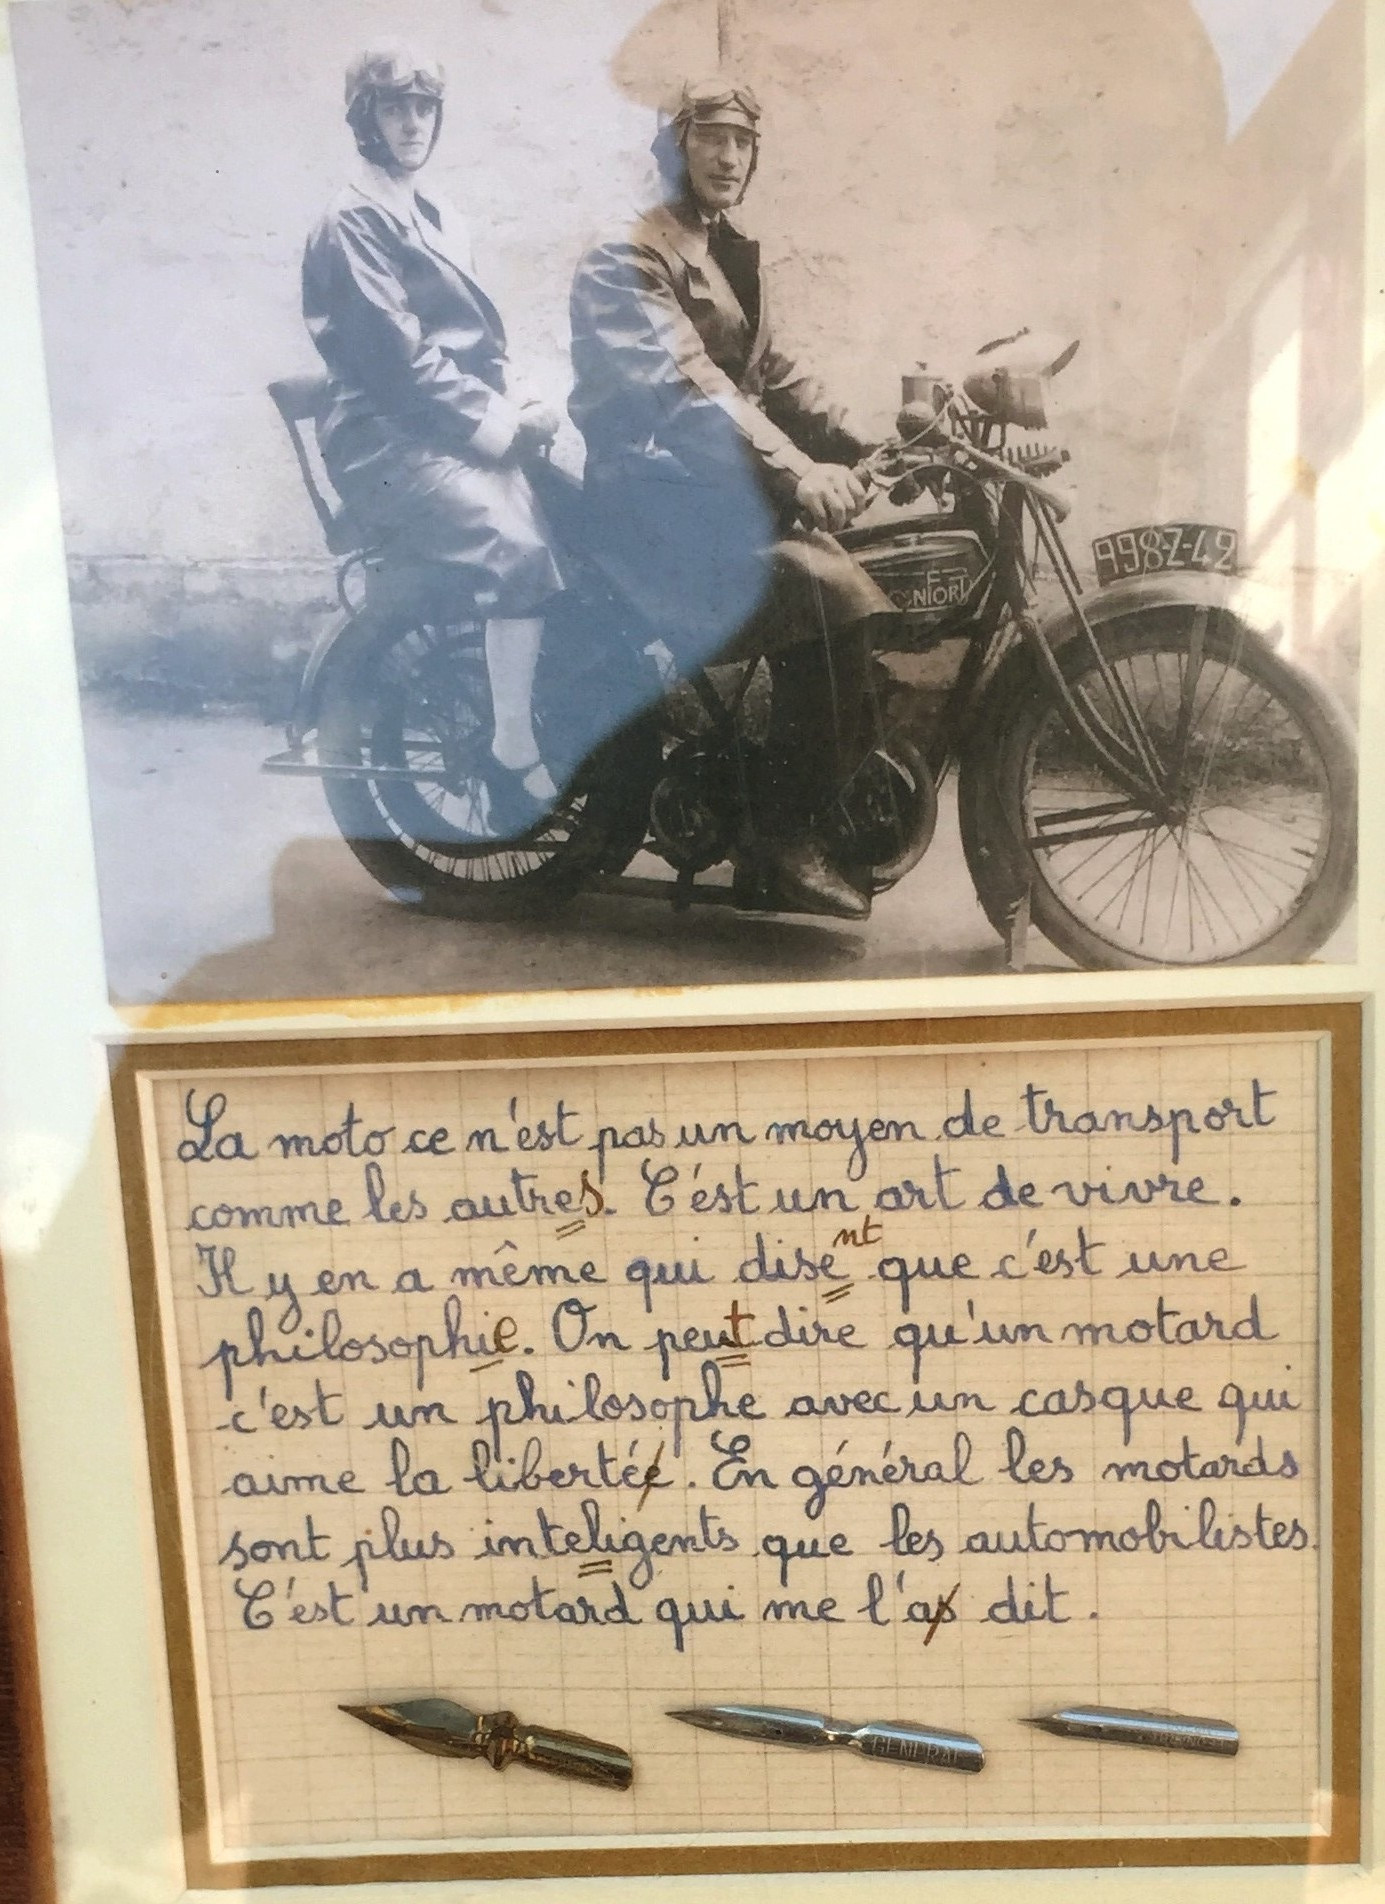 998-Z-42
La moto ce n'est pas un moyen de transport
comme les autres. C'est un art de vivre.
Il y en a même qui disent que c'est une
philosophie. On peut dire qu'un motard
c'est un philosophe avec un casque qui
aime la libertée. En général les motards
sont plus inteligents que les automobilistes.
C'est un motard qui me l'as dit.
GENERAL